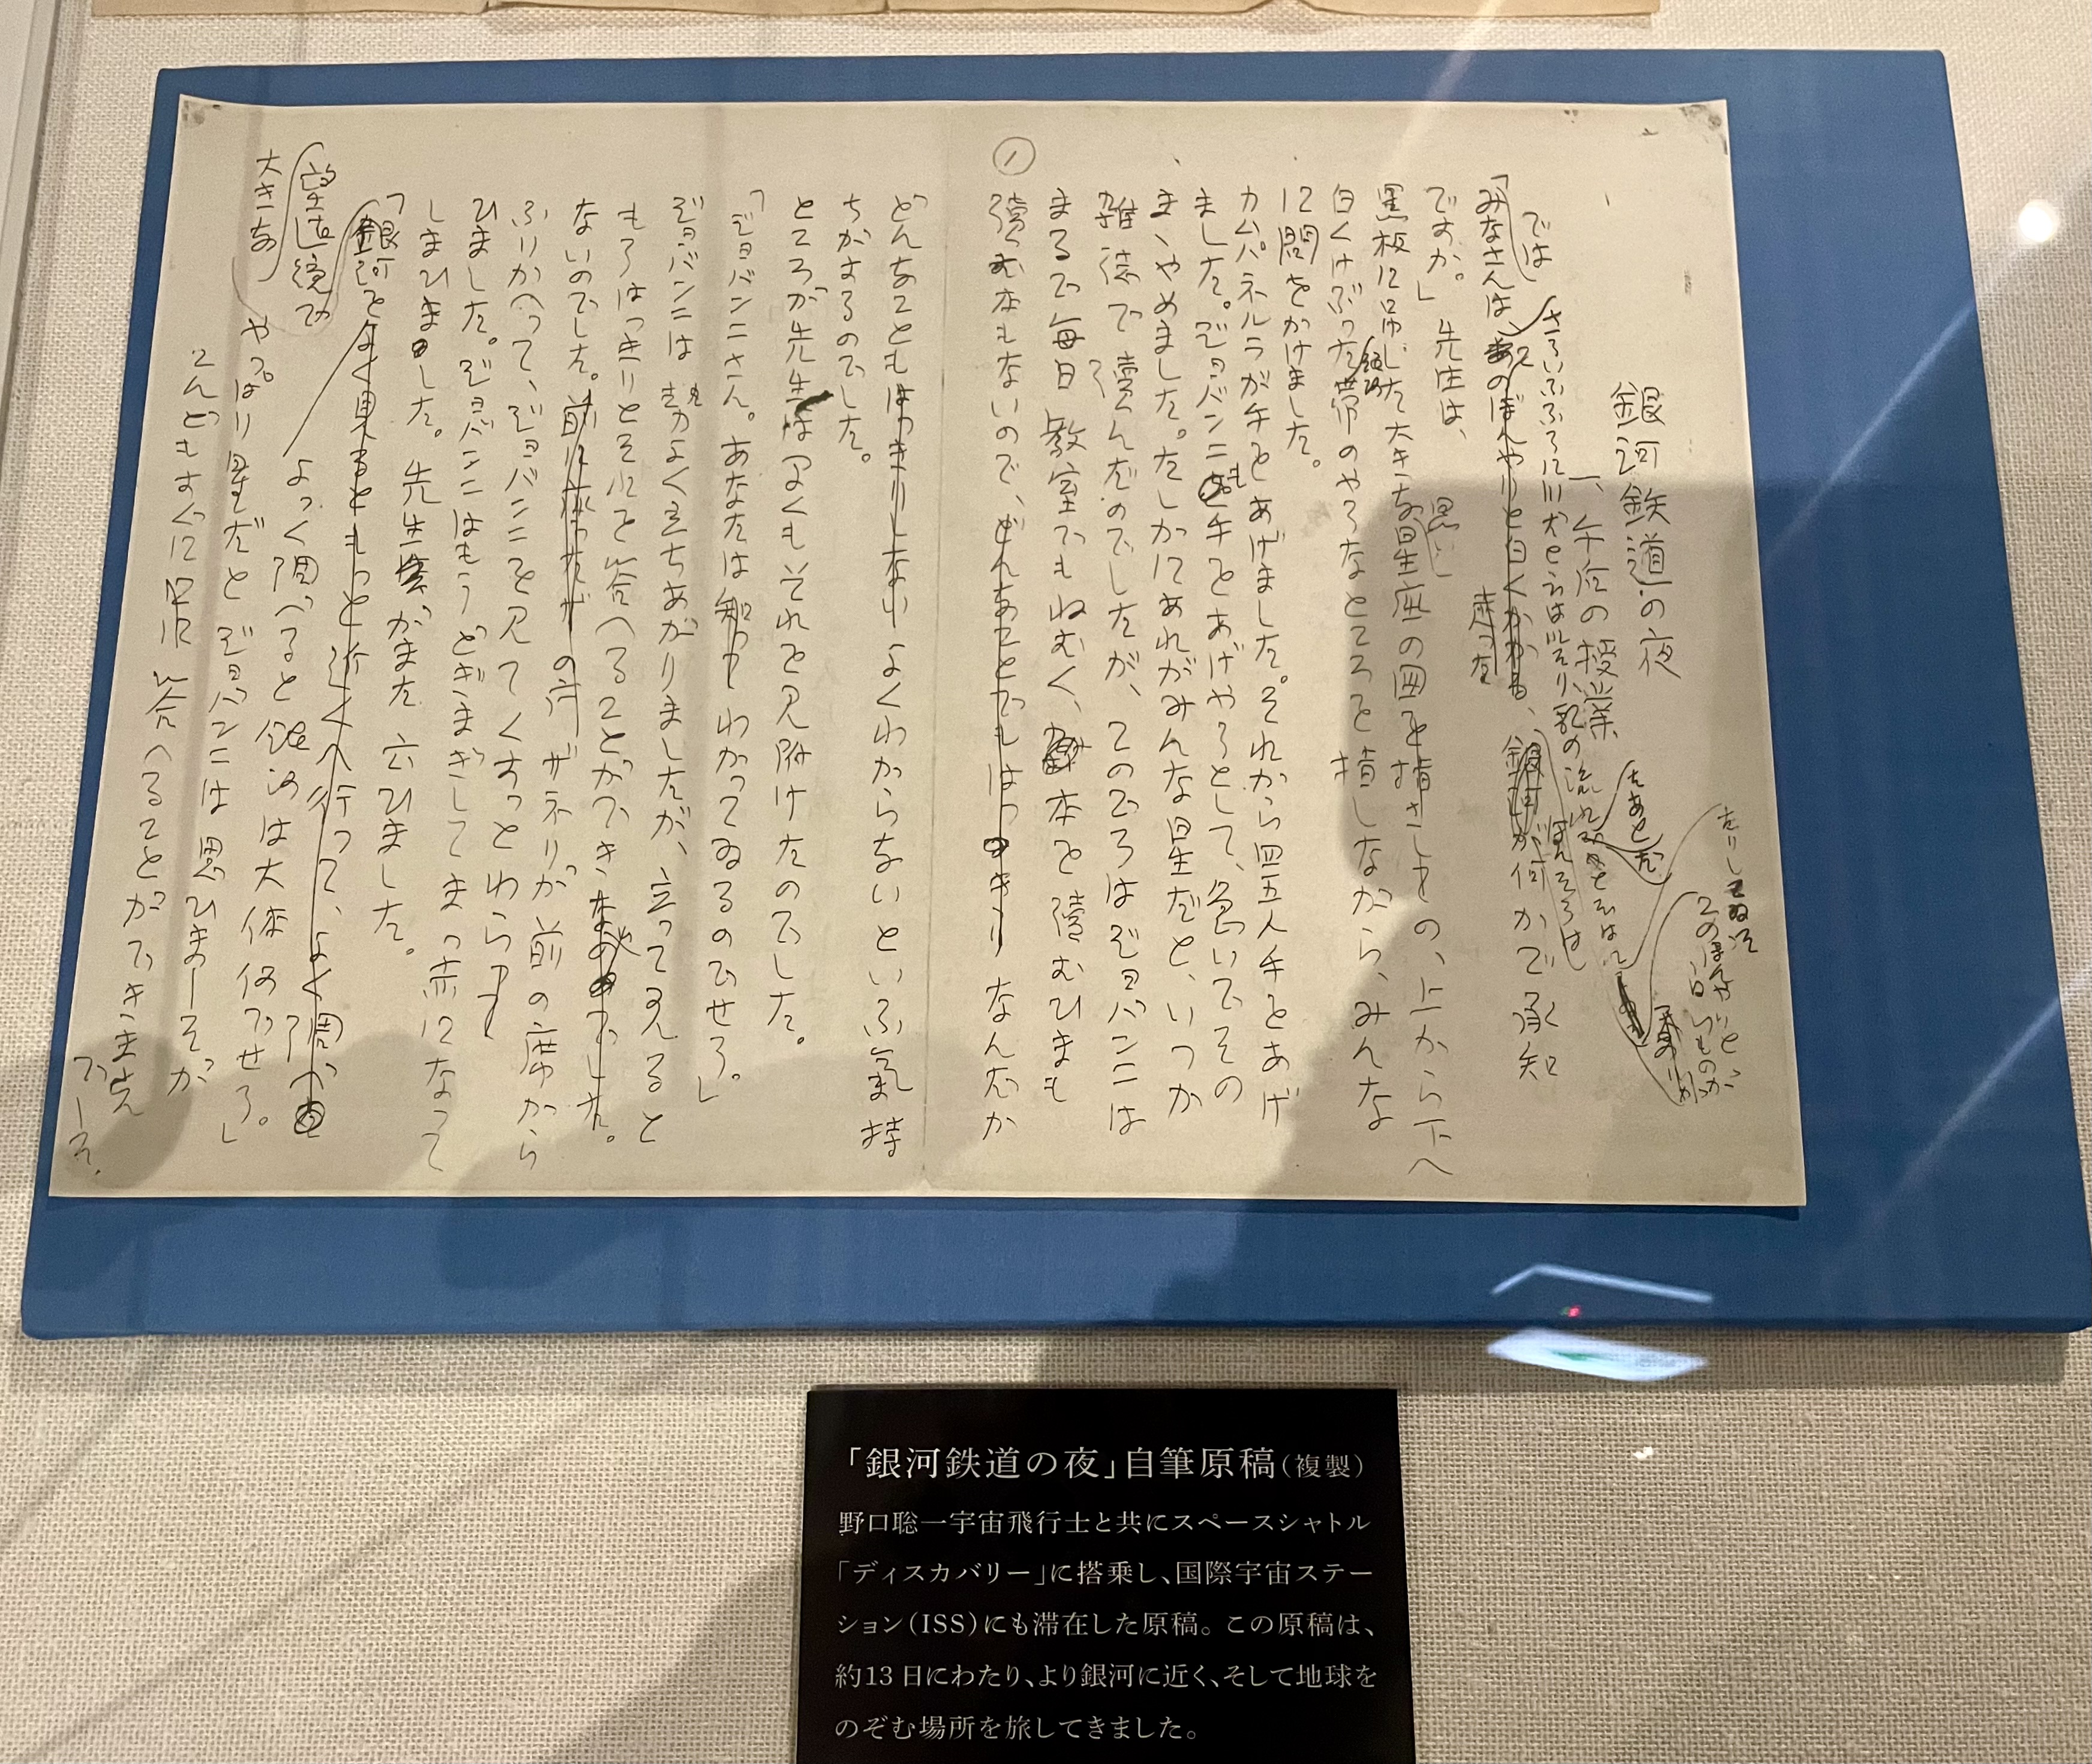 銀河鉄道の夜
一、午后の授業
では
「みなさんは、さういふふうに川だと云はれたり、乳の流れた
あとだと云はれたりしてゐた
このぼんやりと白いものが
ぼんやりと白くかかる、銀河が何かご承知
ですか。」先生は、
黒い
黒板に吊した大きな星座の図を指さしその、上から下へ
白くけぶった銀河帯のやうなところを指しながら、みんな
に問をかけました。
カムパネルラが手をあげました。それから四五人手をあげ
ました。ジョバンニも手をあげやうとして、急いでその
まゝやめました。たしかにあれがみんな星だと、いつか
雑誌で読んだのでしたが、このごろはジョバンニは
まるで毎日教室でもねむく、本を読むひまも
読む本もないので、どんなことでもはっきりなんだか
①
どんなこともはっきりしないよくわからないといふ氣持
ちがするのでした。
ところが先生は早くもそれを見附けたのでした。
「ジョバンニさん。あなたは知ってわかってゐるのでせう。」
ジョバンニは勢よく立ちあがりましたが、立って見ると
もうはっきりとそれを答へることができ
ないのでした。前に座ったザのザネリが前の席から
ふりかへって、ジョバンニを見てくすっとわら
ひました。ジョバンニはもうどぎまぎしてまっ赤になって
しまひました。先生がまた云ひました。
「銀河をよく見るともっと近くへ行って、よく調べ
大きな望遠鏡で
よっく調べると銀河は大体何でせう。」
やっぱり星だとジョバンニは思ひましたが
こんどもすぐに答へることができません
でした。
「銀河鉄道の夜」自筆原稿(複製)
野口聡一宇宙飛行士と共にスペースシャトル
「ディスカバリー」に搭乗し、国際宇宙ステー
ション(ISS)にも滞在した原稿。この原稿は、
約13日にわたり、より銀河に近く、そして地球を
のぞむ場所を旅してきました。